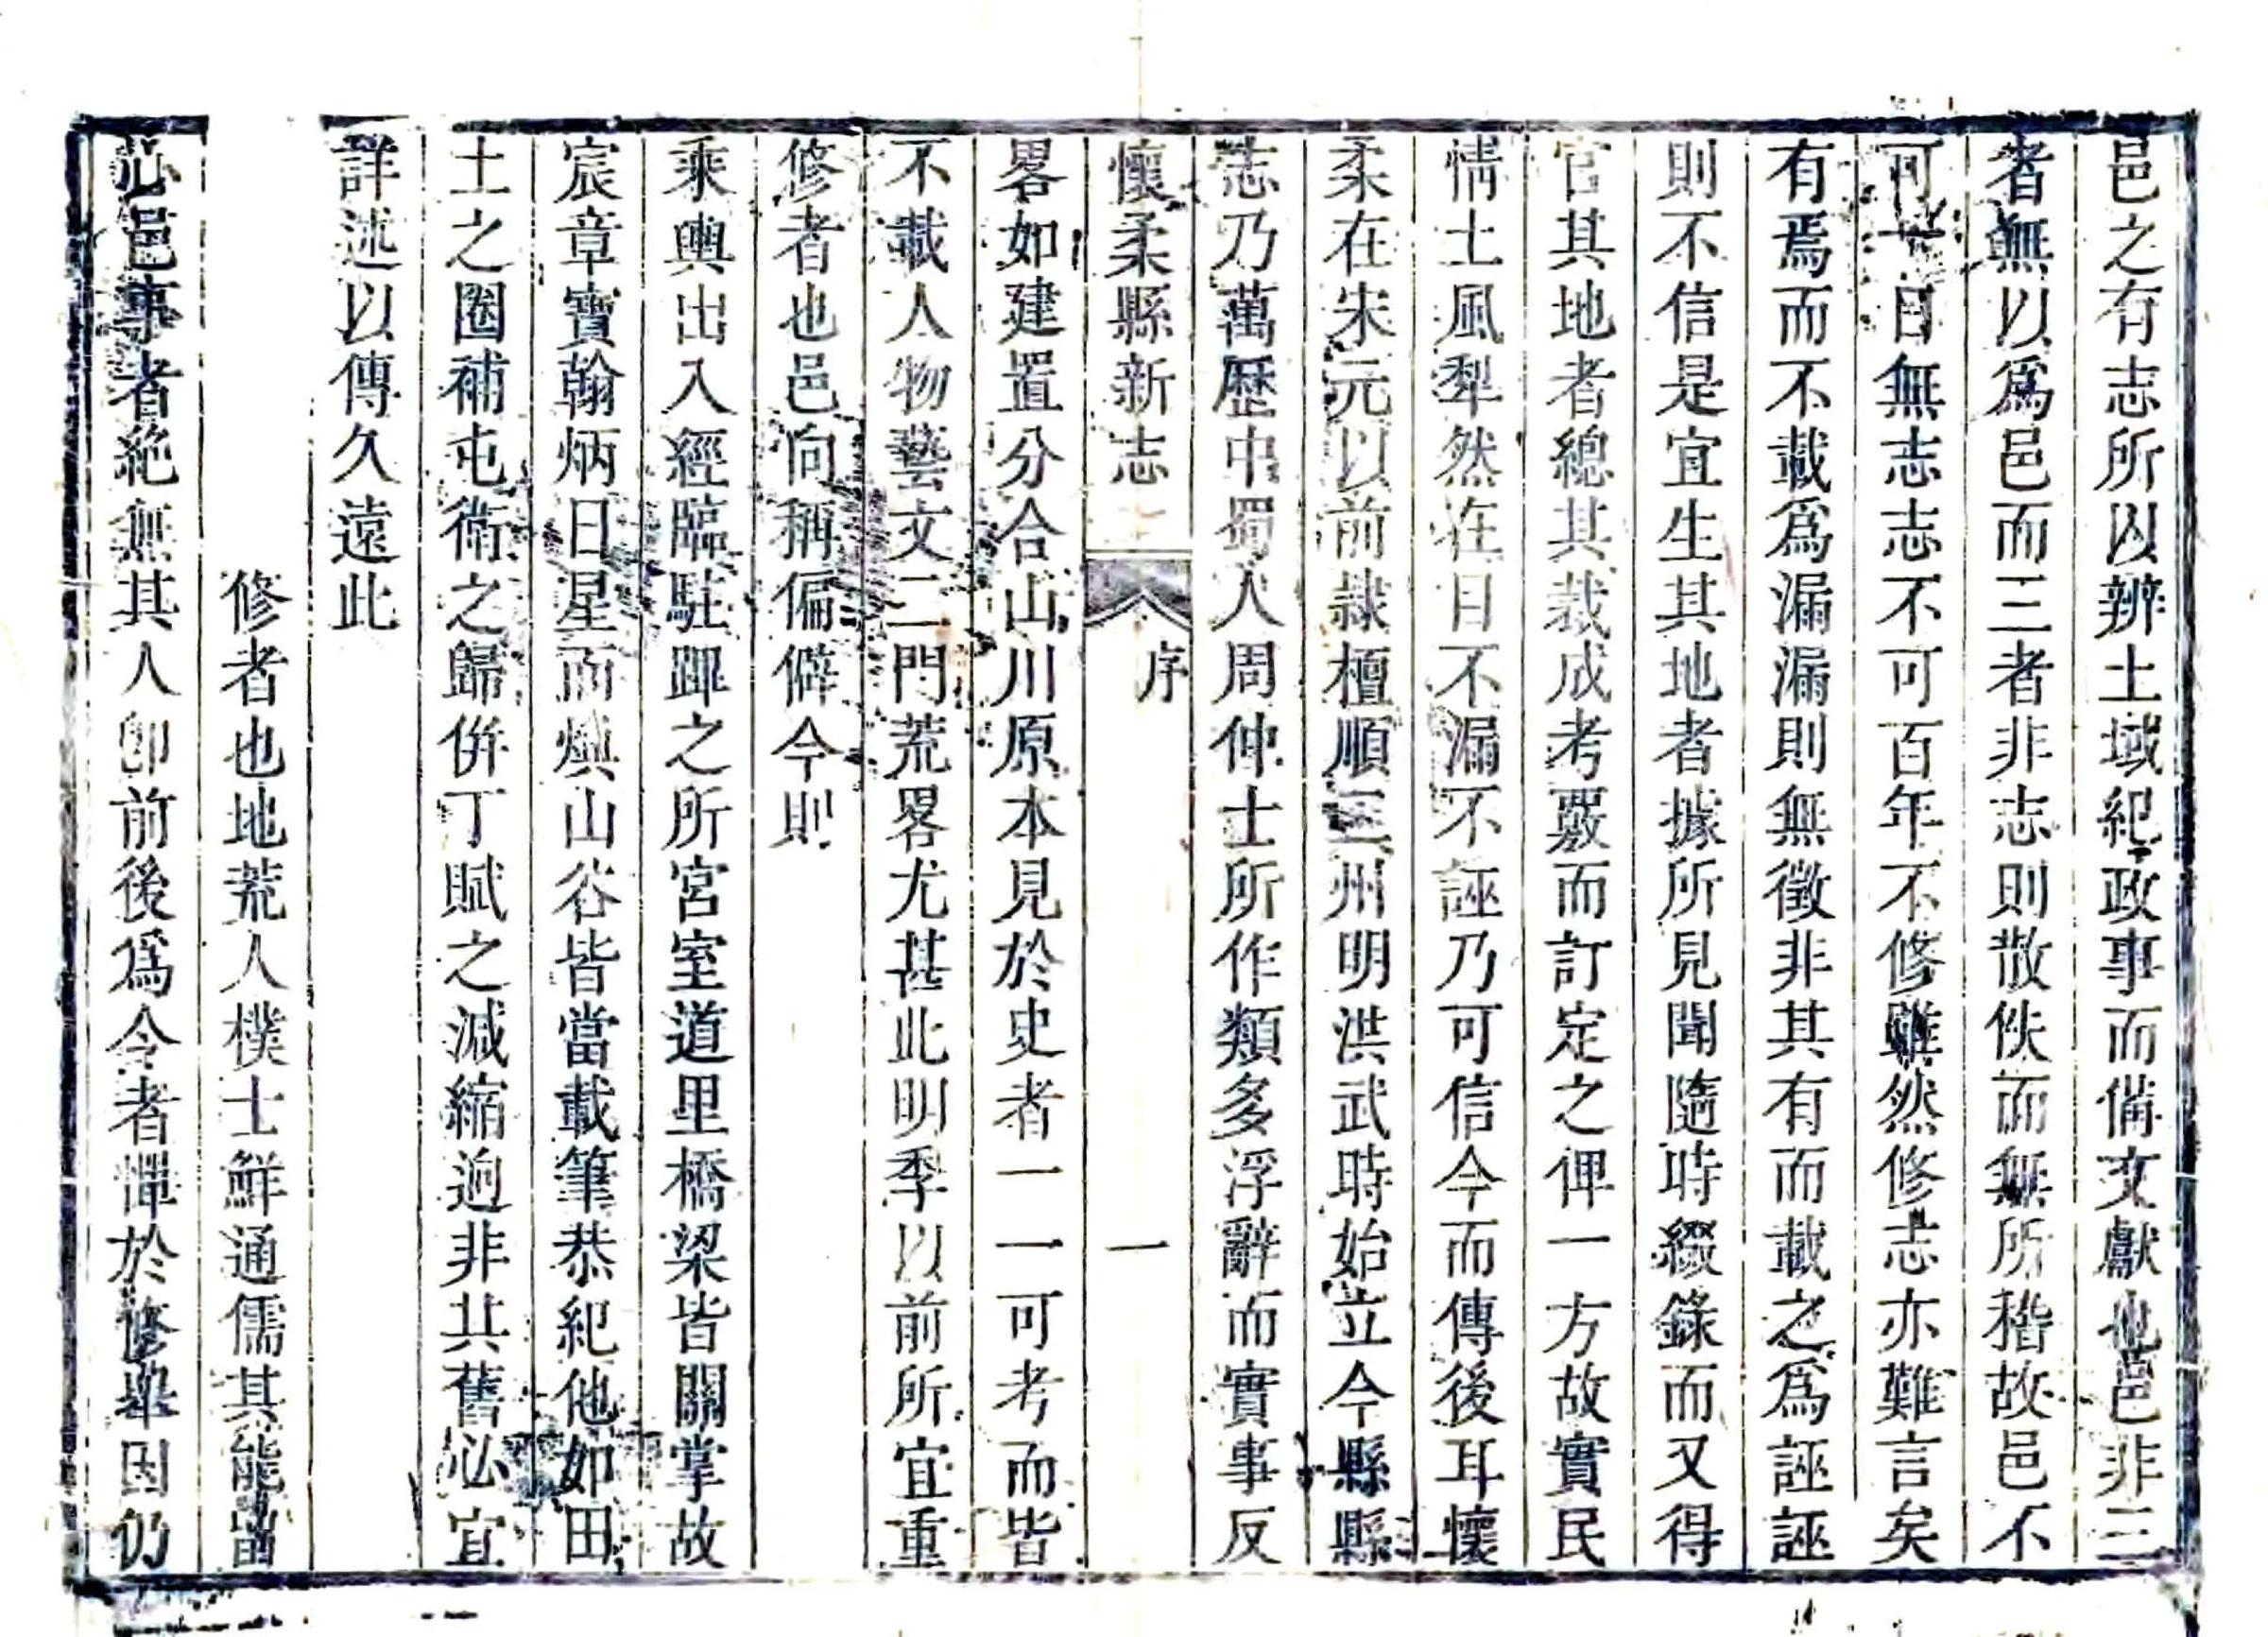 邑之有志所以辨土域紀政事而備文獻也邑非三
者無以爲邑而三者非志則散佚而無所稽故邑不
可一日無志志不可百年不修雖然修志亦難言矣
有焉而不載爲漏漏則無徵非其有而載之爲誣誣
則不信是宜生其地者據所見聞隨時綴錄而又得
官其地者總其裁成考覈而訂定之俾一方故實民
情土風犁然在目不漏不誣乃可信今而傳後耳懷
柔在朱元以前隷檀順三州明洪武時始立今縣縣
志乃萬歷中蜀人周仲士所作類多浮辭而實事反
懷柔縣新志 序 一
畧如建置分合山川原本見於史者一一可考而皆
不載人物藝文二門荒畧尤甚此明季以前所宜重
修者也邑向稱偏僻今則
乘輿出入經臨駐蹕之所宮室道里橋梁皆關掌故
宸章寶翰炳日星而煥山谷皆當載筆恭紀他如田
土之圈補屯衛之歸併丁賦之減縮逈非其舊必宜
詳述以傳久遠此
修者也地荒人樸士鮮通儒其能留
心邑事者絶無其人卽前後爲令者憚於修舉因仍